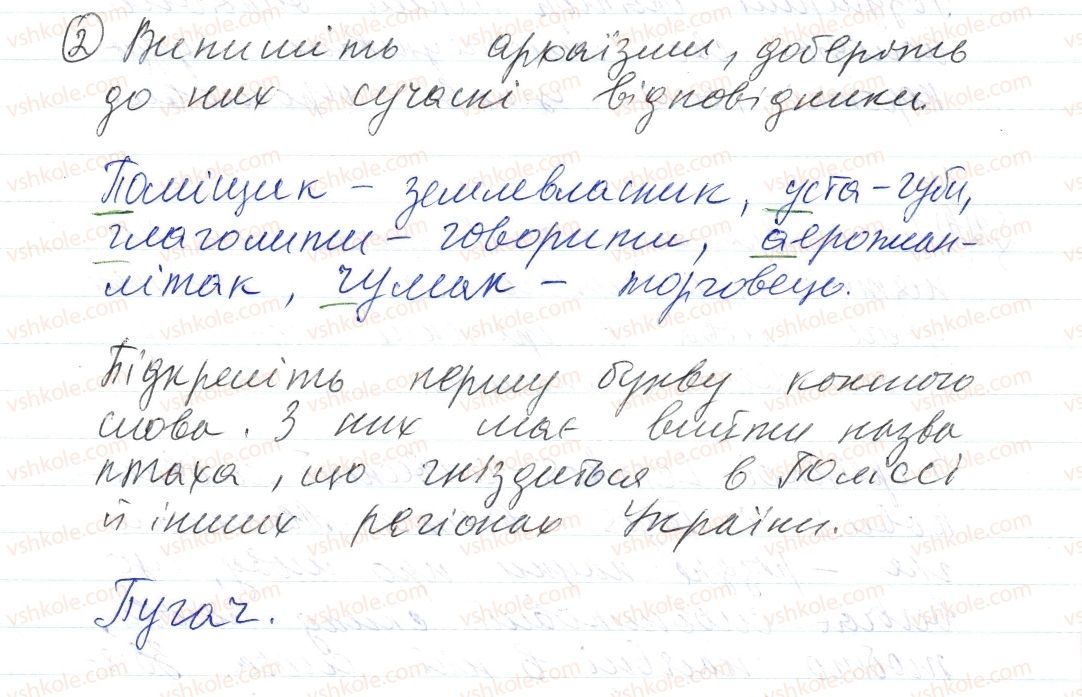 ② Випишіть архаїзми, доберіть
до них сучасні відповідники.
Поміщик – землевласник, уста – губи,
глаголити – говорити, аероплан –
літак, чумак – торговець.
Підкресліть першу букву кожного
слова. З них має вийти назва
птаха, що гніздиться в Поліссі
й інших регіонах України.
Пугач.